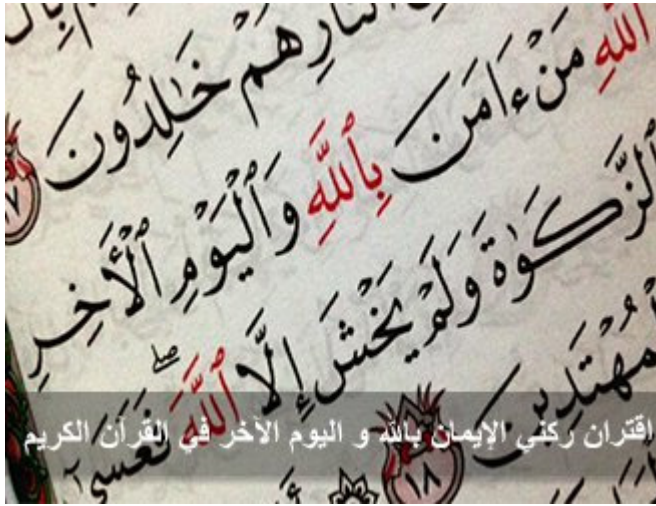 النَّارِ هُمْ خَٰلِدُونَ
١٧
ٱللَّهِ مَنْ ءَامَنَ بِٱللَّهِ وَٱلْيَوْمِ ٱلْأَخِرِ
ٱلزَّكَوٰةَ وَلَمْ يَخْشَ إِلَّا ٱللَّهَ ۖ فَعَسَىٰٓ
ٱلْمُهْتَدِينَ ١٨
اقتران ركني الإيمان بالله و اليوم الآخر في القرآن الكريم